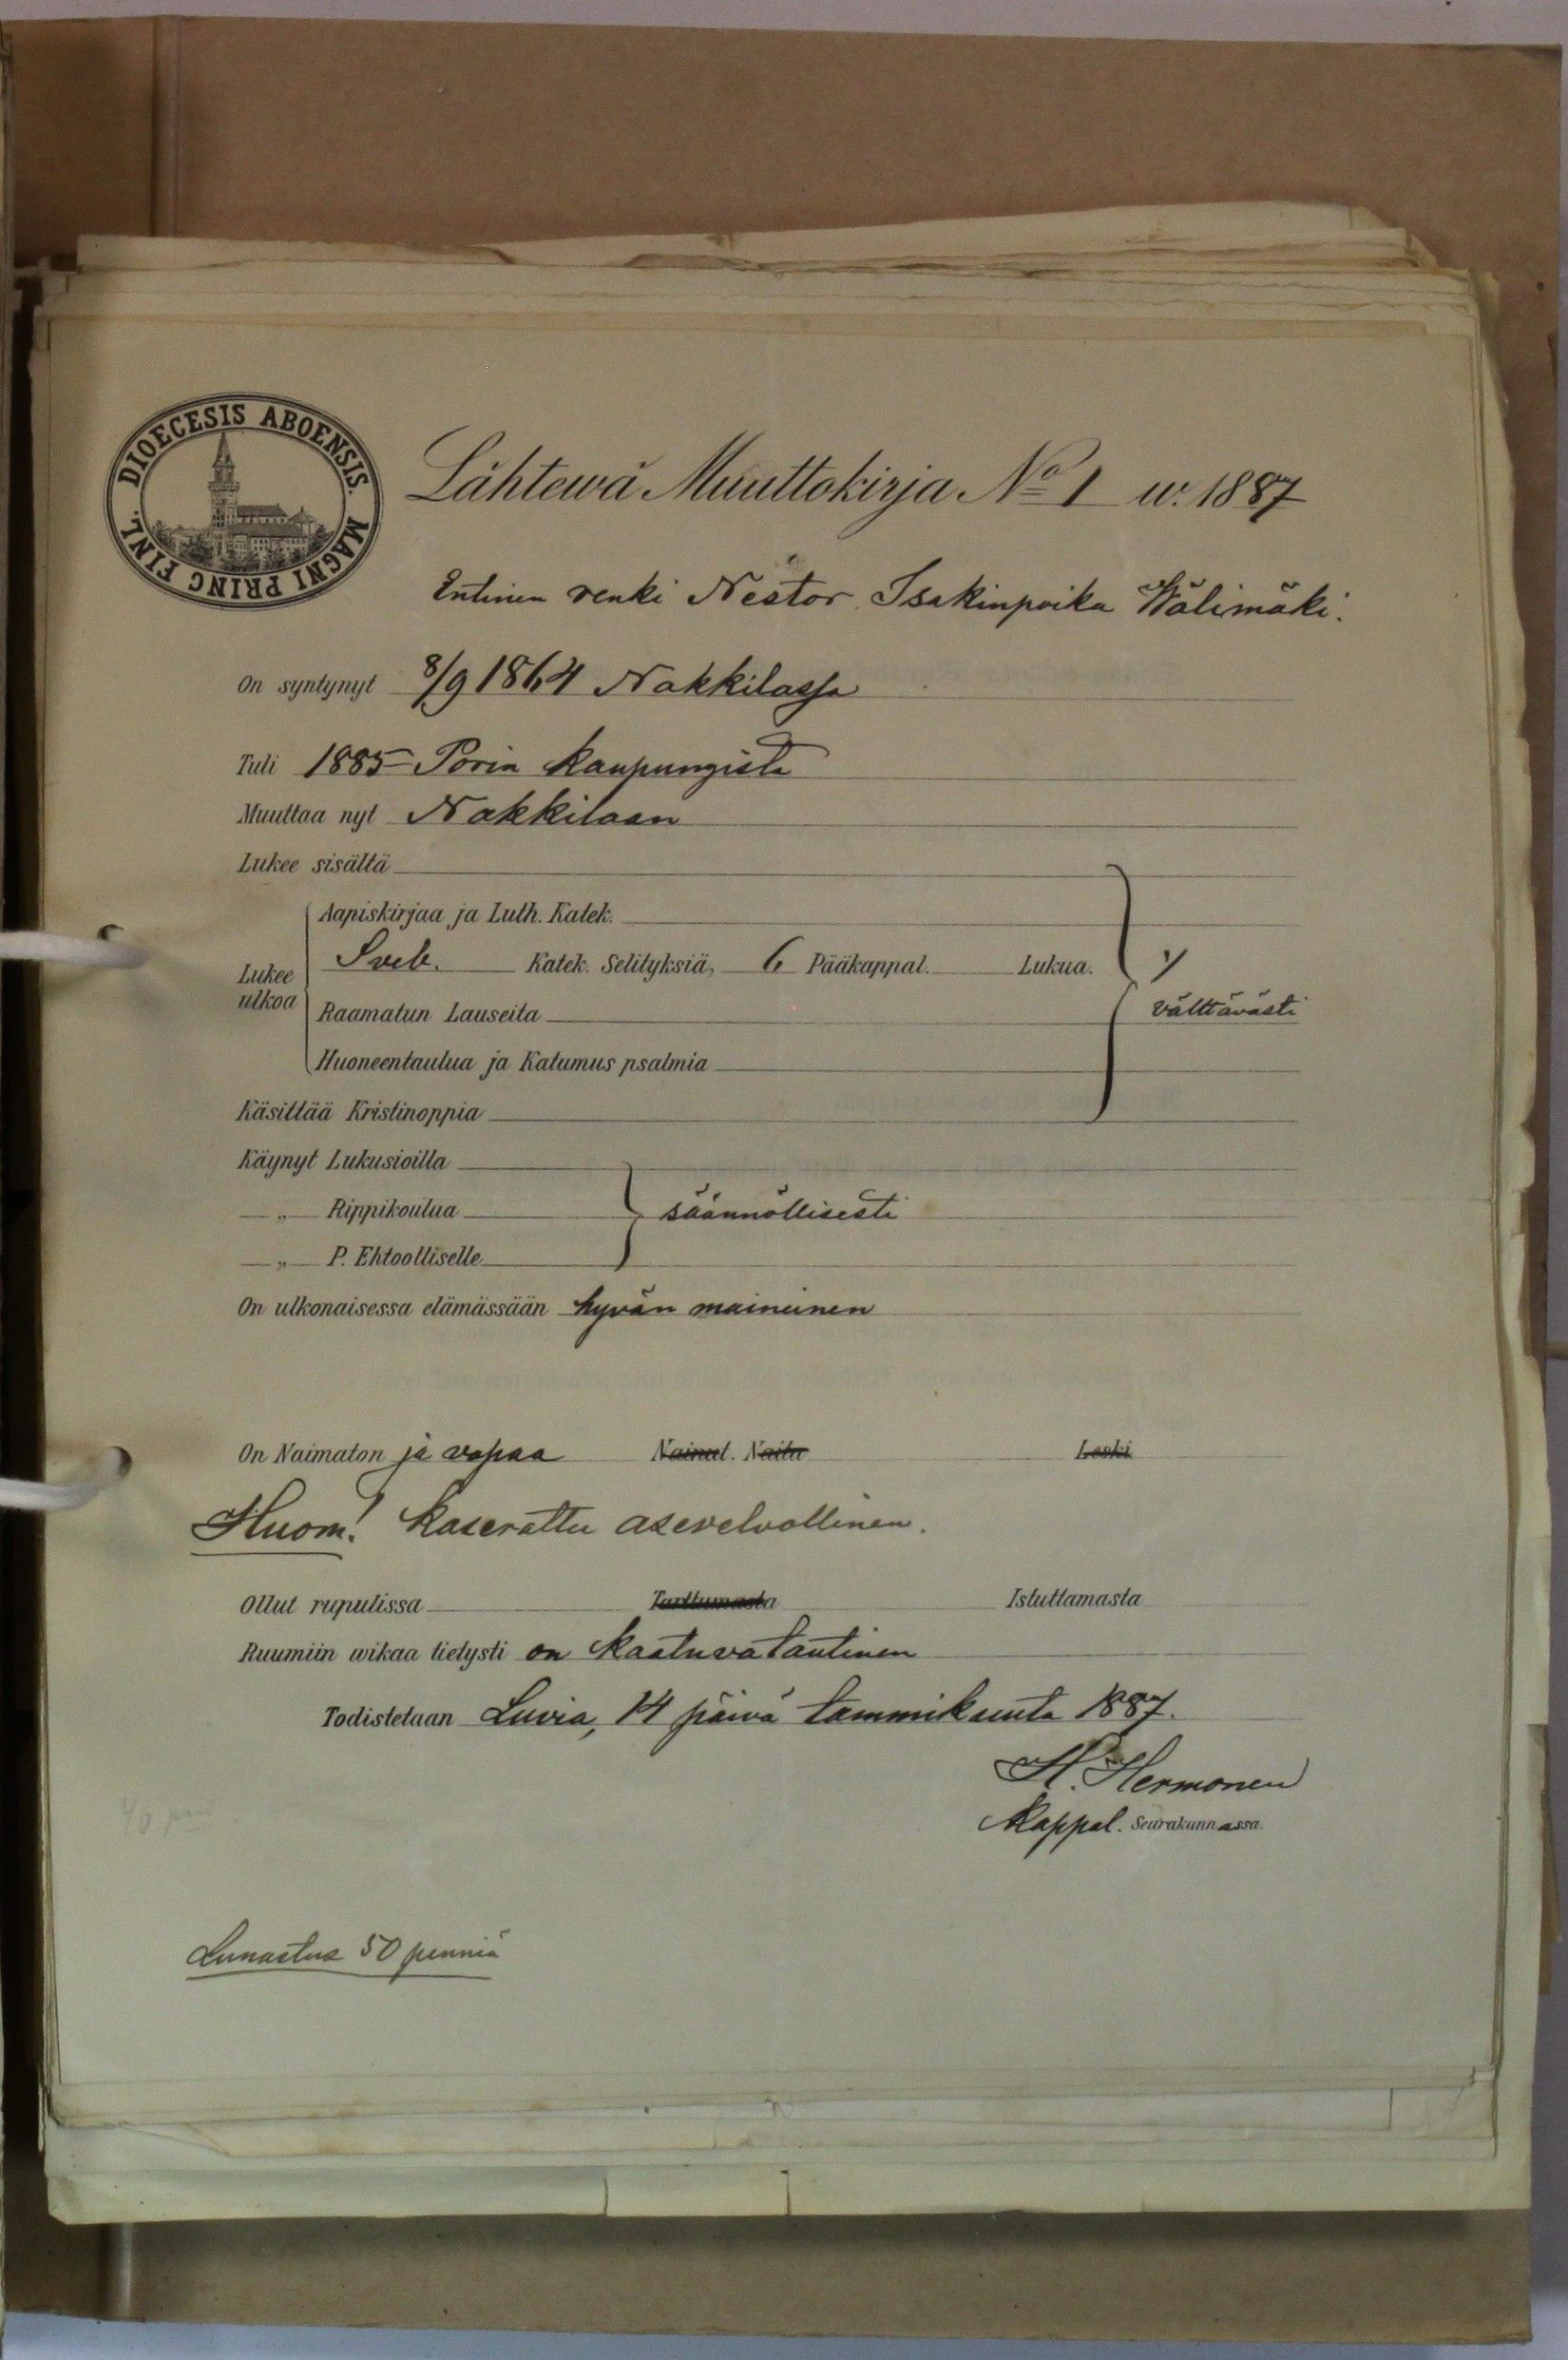 DIOECESIS ABOENSIS. MAGNI PRINC FINL.
Lähtewä Muuttokirja No 1 w. 1887
Entinen renki Nestor Isakinpoika Wälimäki.
On syntynyt 8/9 1864 Nakkilassa
Tuli 1885 Porin kaupungista
Muuttaa nyt Nakkilaan
Lukee sisältä
Aapiskirjaa ja Luth. Katek.
Lukee ulkoa
Sveb. Katek. Selityksiä, 6 Pääkappal. Lukua.
Raamatun Lauseita
välttävästi
Huoneentaulua ja Katumus psalmia
Käsittää Kristinoppia
Käynyt Lukusioilla
—„— Rippikoulua säännöllisesti
—„— P. Ehtoolliselle
On ulkonaisessa elämässään hyvän maineinen
On Naimaton ja vapaa Nainut. Naitu Leski
Huom! kaserattu asevelvollinen.
Ollut rupulissa Tarttumasta Istuttamasta
Ruumiin wikaa tietysti on kaatuvatautinen
Todistetaan Luvia, 14 päivä tammikuuta 1887.
H. Hermonen
Kappal. Seurakunnassa.
Lunastus 50 penniä